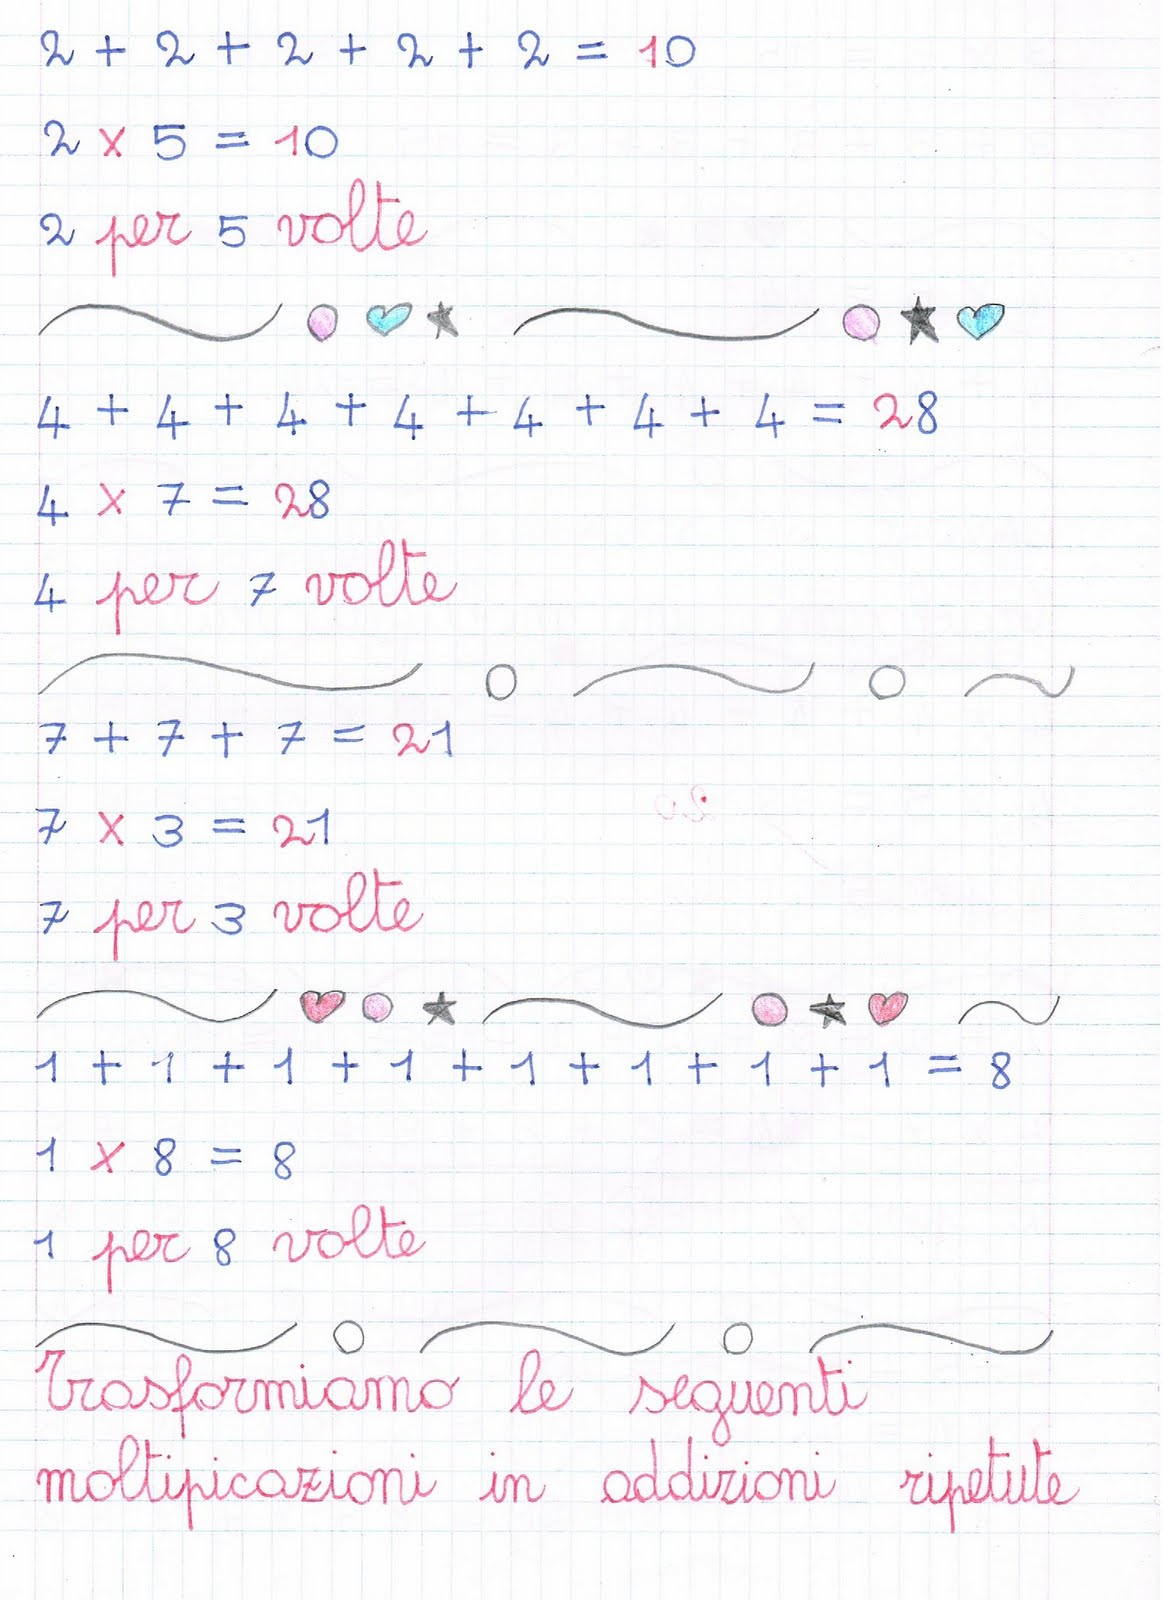 2 + 2 + 2 + 2 + 2 = 10
2 x 5 = 10
2 per 5 volte
4 + 4 + 4 + 4 + 4 + 4 + 4 = 28
4 x 7 = 28
4 per 7 volte
7 + 7 + 7 = 21
7 x 3 = 21
7 per 3 volte
1 + 1 + 1 + 1 + 1 + 1 + 1 + 1 = 8
1 x 8 = 8
1 per 8 volte
Trasformiamo le seguenti
moltipicazioni in addizioni ripetute